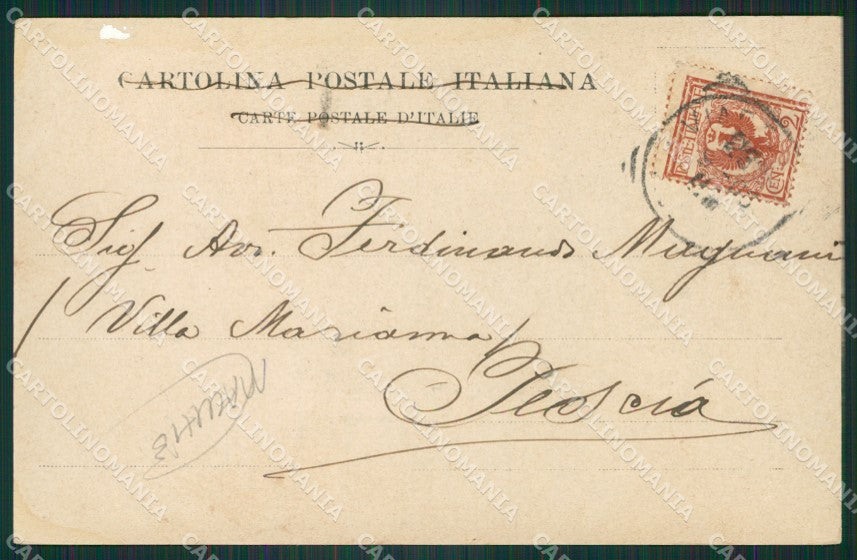 CARTOLINA POSTALE ITALIANA
CARTE POSTALE D'ITALIE
POSTE ITALIANE
2
CEN
Sig. Avv. Ferdinando Magnani
(Villa Marianna)
Pescia
CARTOLINOMANIA